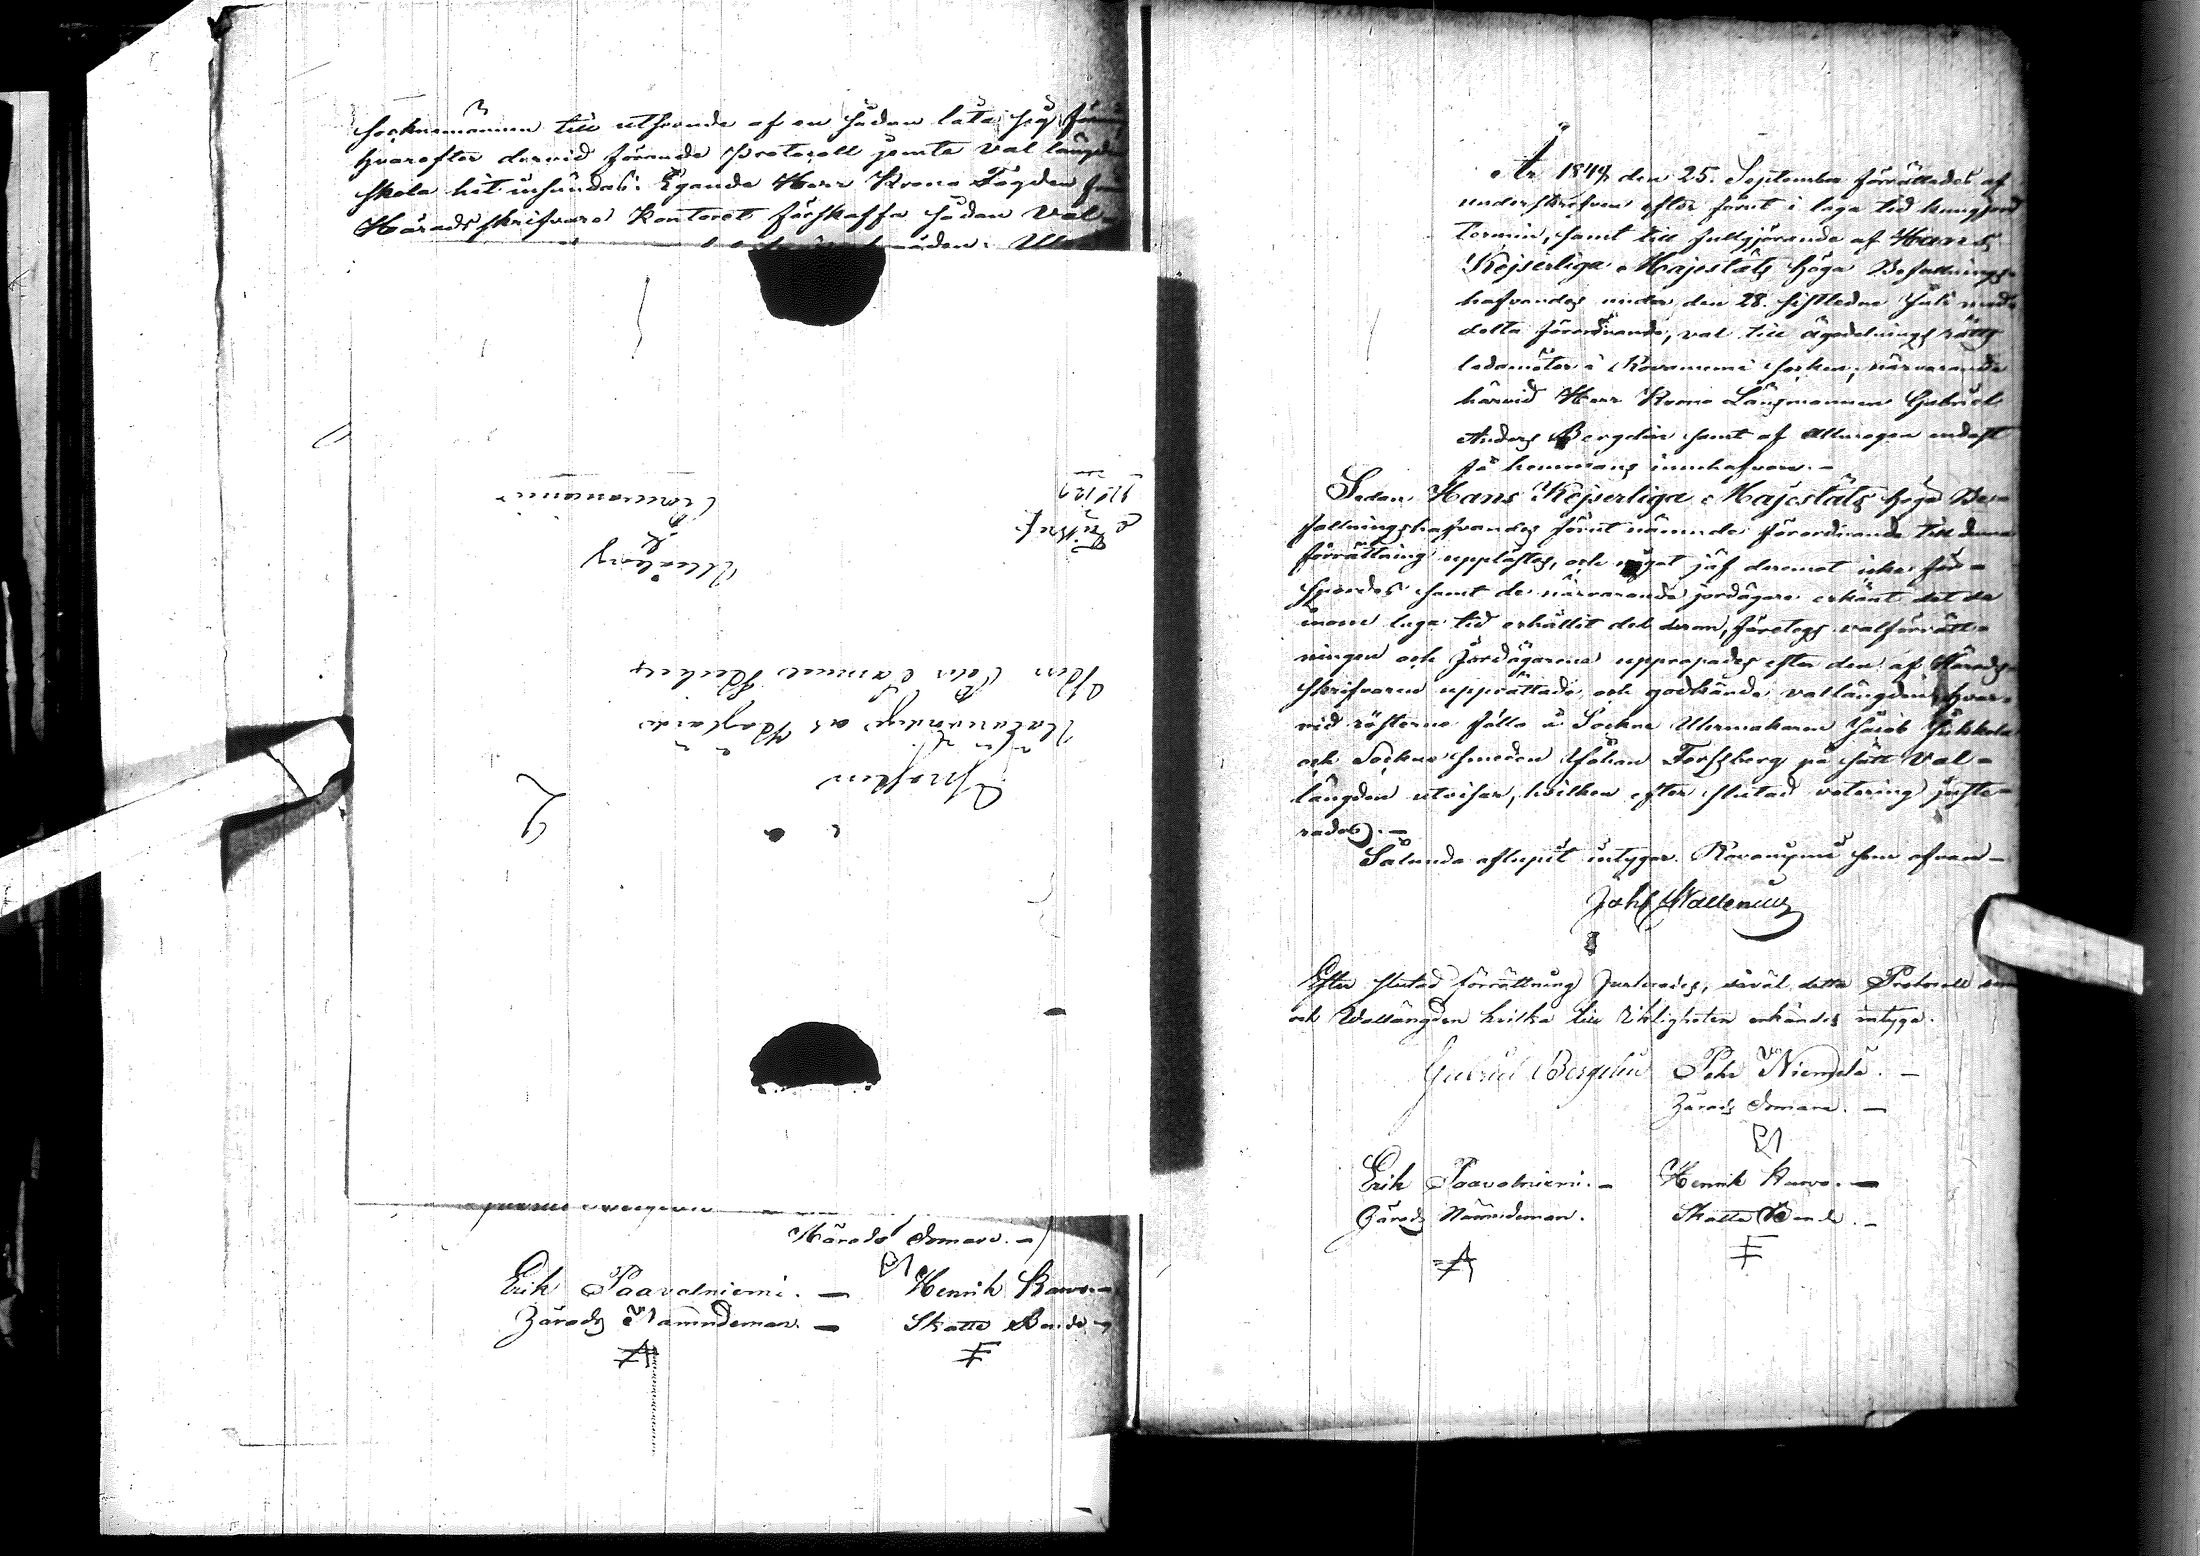 Socknemännen till utseende af en sådan låta sig
hvarefter dervid förande Protocoll jemte Val längden
skola hit insändas: Egande Herr Krono Fogden
Härads skrifvare Kontoret förskaffa sådan Val-
Rovaniemi
Uleåborg
Fribref
Härads Domare. —
Erik Paavalniemi. — Henrik Karvo. —
Härads Nämndeman. — Skatte Bonde. —
År 1844 den 25. September förrättades af
underskrefven efter förut i laga tid kungjord
Termin, samt till fullgjörande af Hans
Kejserliga Majestäts höga Befallnings-
hafvandes under den 28. sistledne Juli
detta förordnande, val till ägodelnings rätts
ledamöter i Rovaniemi Socken, närvarande
härvid Herr Krono Länsmannen Gabriel
Anders Bergelin samt af Allmogen endast
få hemmans innehafvare. —
Sedan Hans Kejserliga Majestäts höga Be-
fallningshafvandes förut nämnde förordnande till denna
förrättning upplästes, och något jäf deremot icke för-
spordes samt de närvarande jordägare erkänt det de
inom laga tid erhållit del deraf, företogs valförrätt-
ningen och Jordägarene uppropades efter den af Härads-
skrifvaren upprättade och godkände vallängden, hvar-
vid rösterne fälla å Sockne Urmakaren Jacob
och Sockne Smeden Johan Forssberg på sätt Val-
längden utvisar, hvilken efter slutad votering juste-
rades. —
Sålunda aflupit intygar. Rovaniemi som ofvan —
Joh Wallenius
Efter slutad förrättning Justerades, såväl detta Protocoll som
och Vallängden hvilka till riktigheten erkändes intyga.
Gabriel Bergelin Pehr Niemelä. —
Härads Domare. —
Erik Paavalniemi. — Henrik Karvo. —
Härads Nämndeman. Skatte Bonde. —